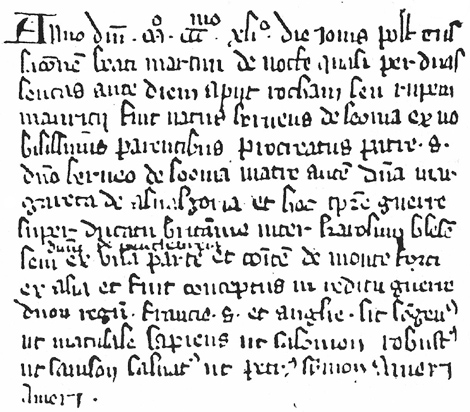 Anno dñi . mº . cccᵐᵒ xliº . die iovis post trns
lacionẽ beati martini de nocte quasi per duas
leucas ante diem aput rocham seu rupem
mauricii fuit natus herveus de leonia ex no
bilissimis parentibus procreatus patre . s .
dño herveo de leonia matre autẽ dña mar
gareta de et hoc tp̃re guerre
super ducatu britanie inter karolum blesẽ
ducẽ de
sem ex una parte et comitẽ de monte forti
ex alia et fuit conceptus in reditu guerre
duoꝝ regũ . francie . s . et anglie . sit
ut matusale sapiens ut salomon robustꝰ
ut sanson salvatꝰ ut petrꝰ symon Amen
Amen .